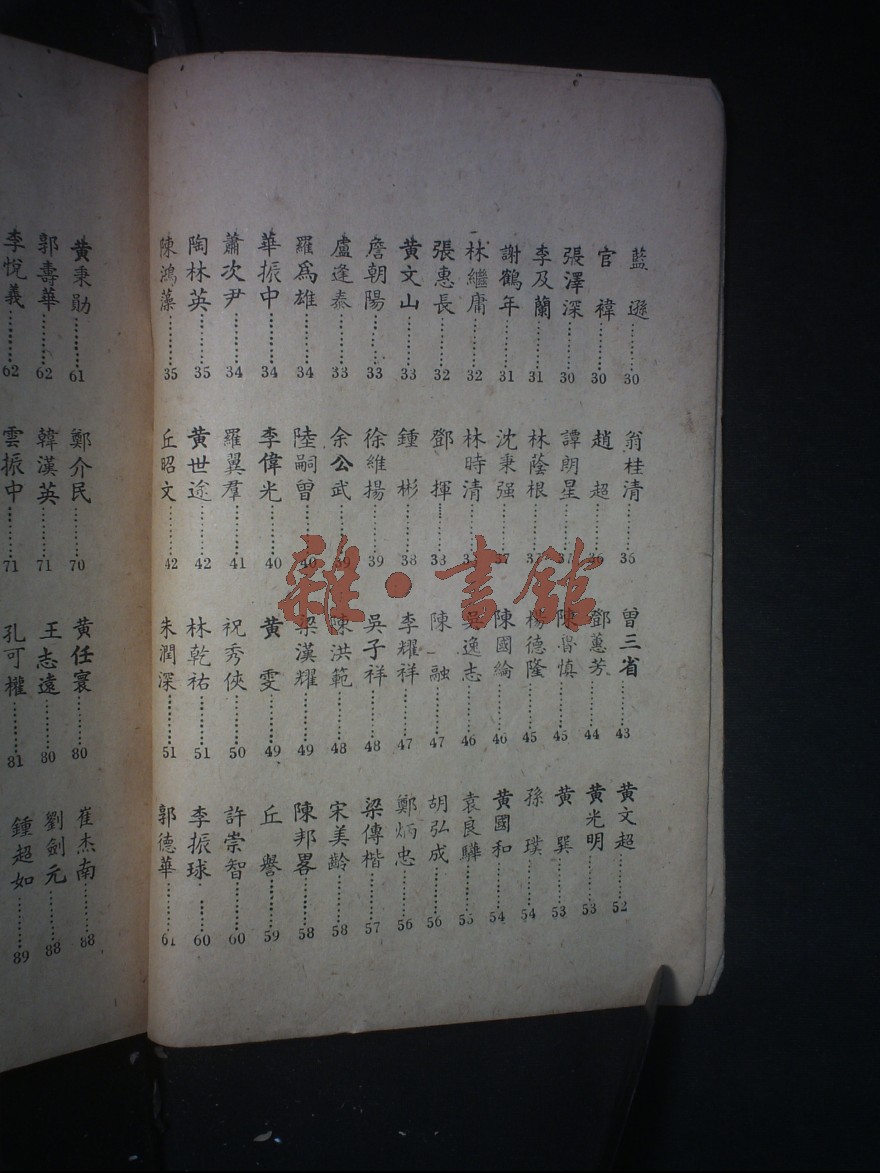 藍遜………30
官禕………30
張澤深………30
李及蘭………31
謝鶴年………31
林繼庸………32
張惠長………32
黃文山………33
詹朝陽………33
盧逢泰………33
羅爲雄………34
華振中………34
蕭次尹………34
陶林英………35
陳鴻藻………35
翁桂清………36
趙超………36
譚朗星………37
林蔭根………37
沈秉强………37
林時清………38
鄧揮………38
鍾彬………38
徐維揚………39
余公武………39
陸嗣曾………40
李偉光………40
羅翼羣………41
黃世途………42
丘昭文………42
曾三省………43
鄧蕙芳………44
陳啓慎………45
楊德隆………45
陳國綸………46
吳逸志………46
陳融………47
李耀祥………47
吳子祥………48
陳洪範………48
梁漢耀………49
黃雯………49
祝秀俠………50
林乾祐………51
朱潤深………51
黃文超………52
黃光明………53
黃巽………53
孫璞………54
黃國和………54
袁良驊………55
胡弘成………56
鄭炳忠………56
梁傳楷………57
宋美齡………58
陳邦畧………58
丘譽………59
許崇智………60
李振球………60
郭德華………61
黃秉勛………61
郭壽華………62
李悅義………62
鄭介民………70
韓漢英………71
雲振中………71
黃任寰………80
王志遠………80
孔可權………81
崔杰南………88
劉劍元………88
鍾超如………89
雜·書館